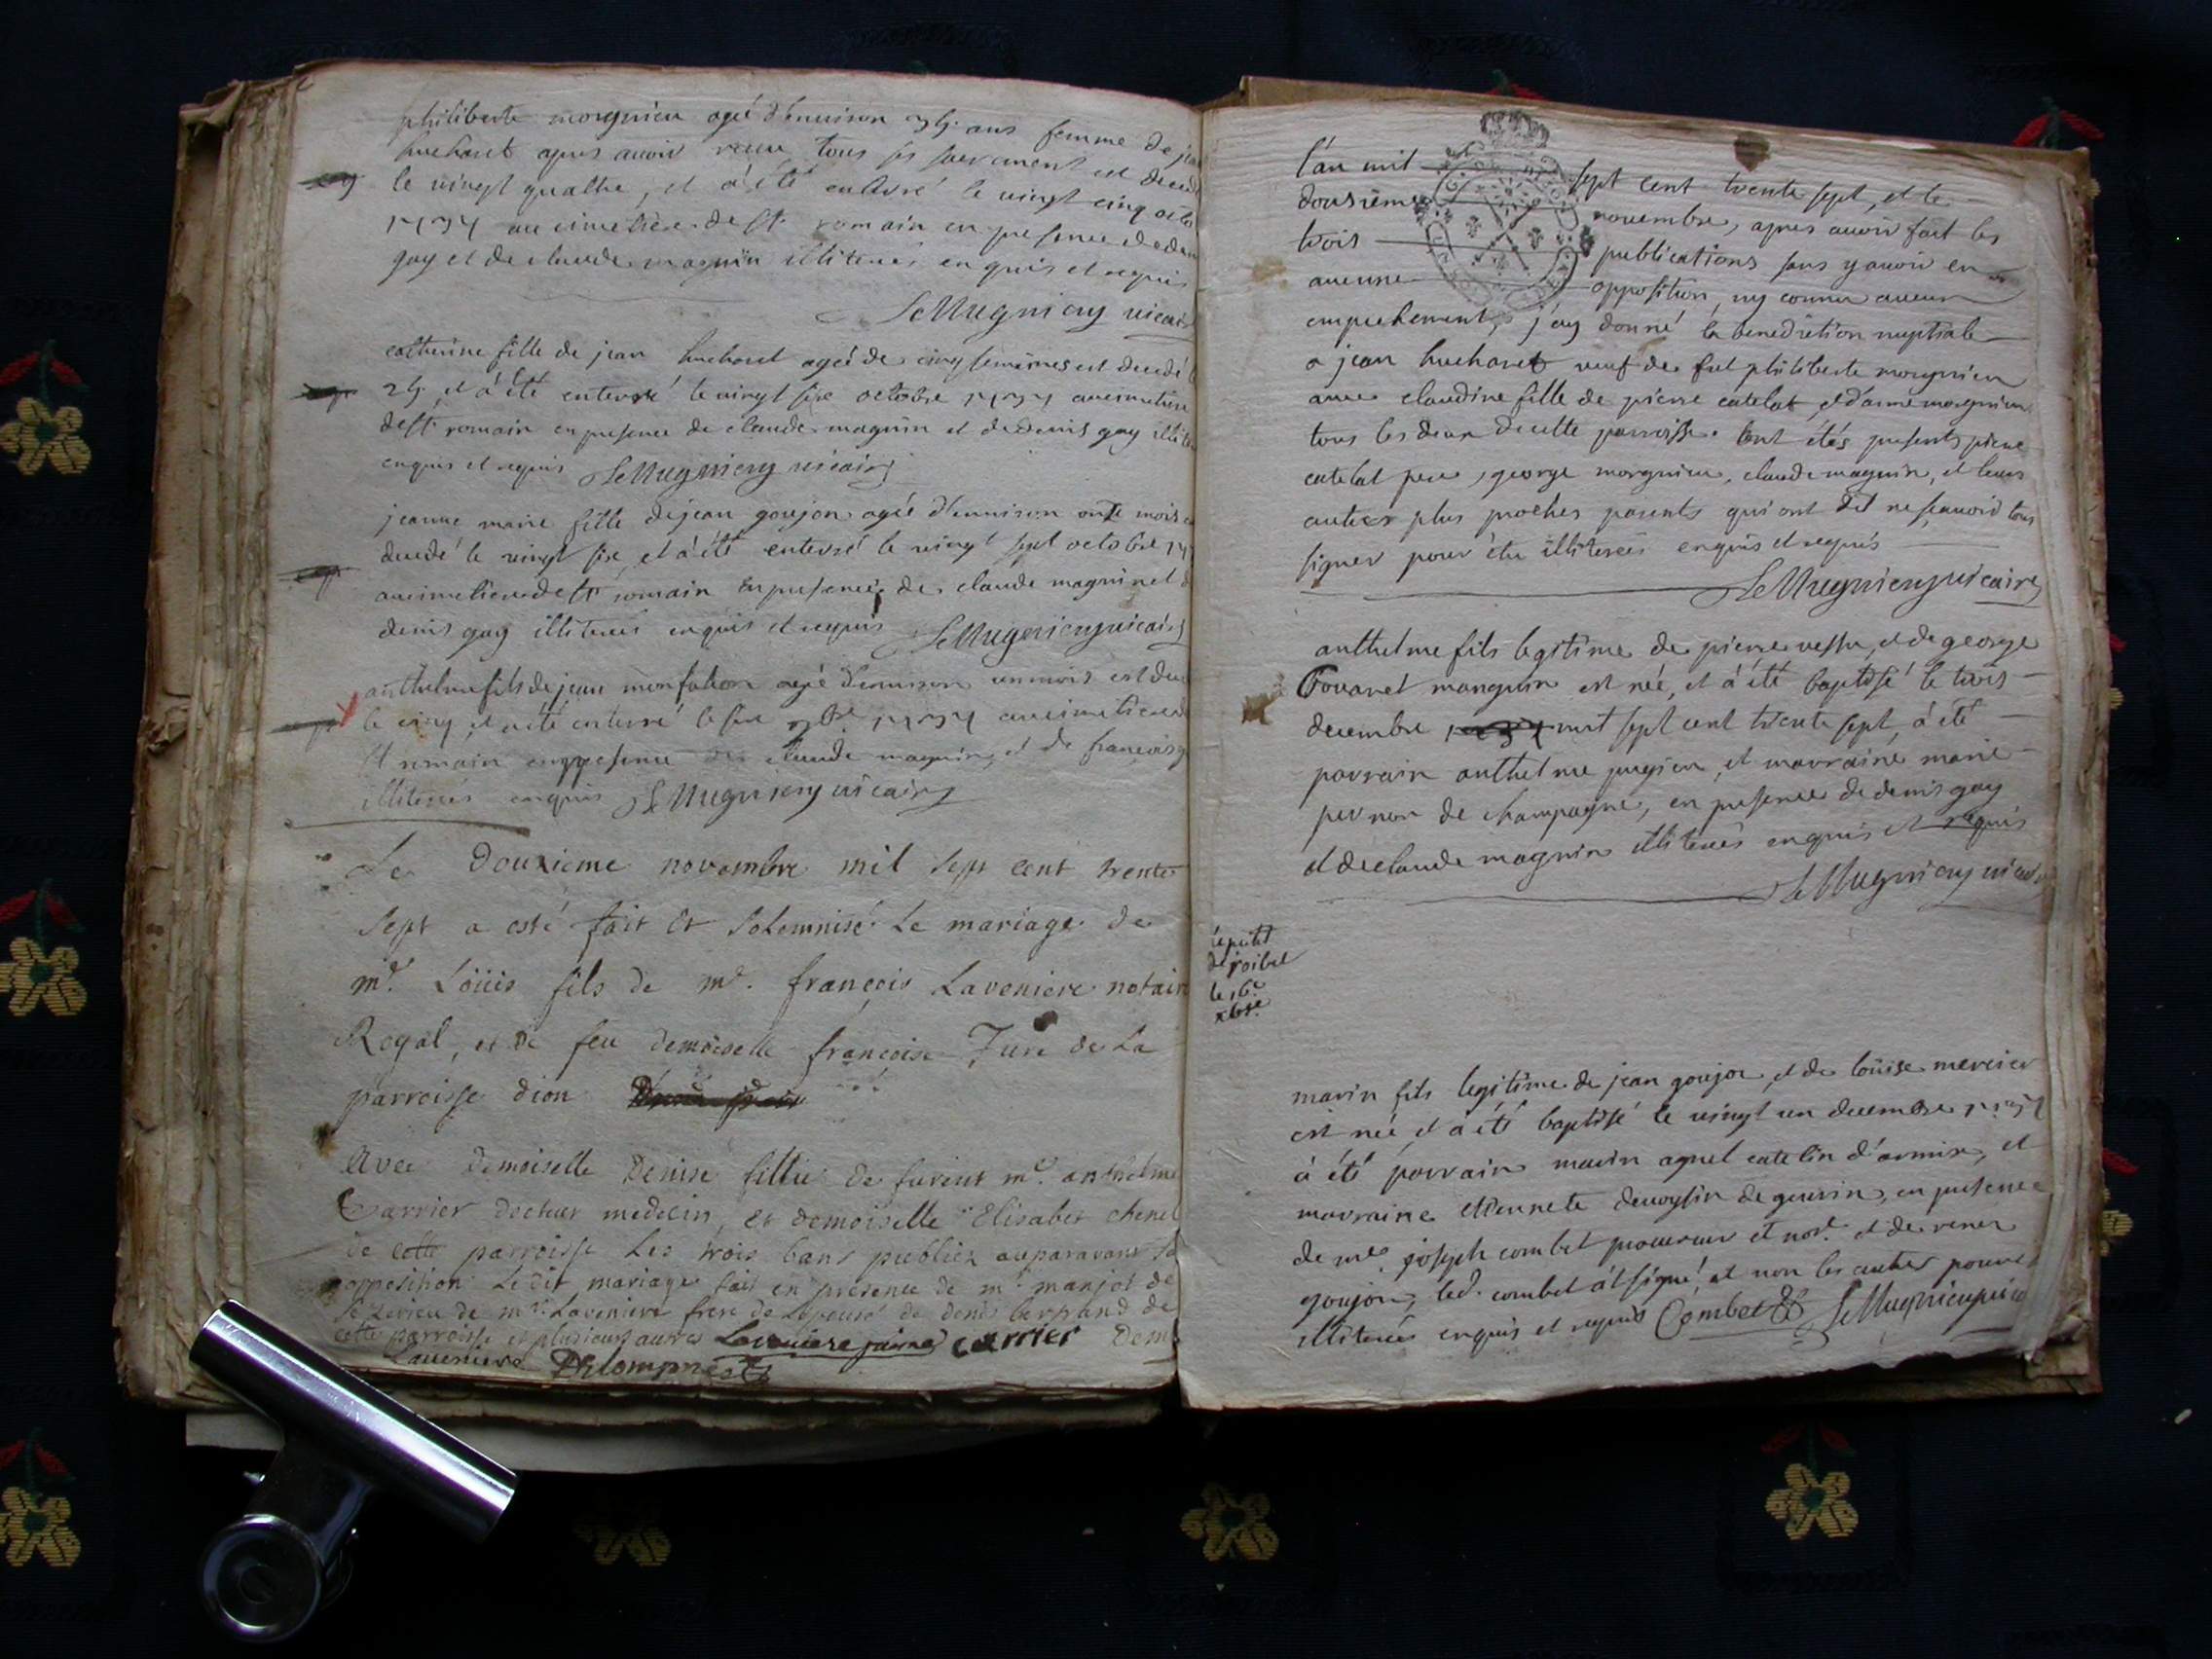 philiberte morgnieu agé d'enuison 35 ans femme de
huchard apres auoir receu tous ses sacrements est decedé
le vingt quattre, et à été enterré le vingt cinq octo
1737 au cimetiere de st romain en presence de den
gay et de claude magnin illiterés enquis et requis
LeMugniery vicair
catherine fille de jean huchard agée de cinq semaines est decedé
25 et à été enterré le vingt six octobre 1737 au cimetiere
de st romain en presence de claude magnin et de denis gay illi
enquis et requis LeMugniery vicaire
jeanne marie fille de jean goujon agée d'enuison onze mois
decedé le vingt six, et à été enterré le vingt sept octobre 17
au cimetiere de st romain en presence de claude magnin et
denis gay illiterés enquis et requis LeMugniery vicaire
anthelme fils de jean agé d'enuison un mois est de
le cinq, et à été enterré le six 9bre 1737 au cimetiere
st romain en presence de claude magnin, et de françois
illiterés enquis LeMugniery vicaire
Le Douxieme novembre mil Sept cent trente
Sept a esté fait et Solemnisé Le mariage de
mr. Loüis fils de mr. françois Laveniere notair
Royal, et de feu demoiselle françoise Jure de La
parroisse dion
Avec demoiselle Denise fillie de furent mr. anthelme
Carrier docteur medecin, et demoiselle Elisabet chenel
de cette parroisse Les trois bans publiez auparavant
opposition Le dit mariage fait en presence de mr. manjot de
de mr. Laveniere frere de Lepoux de denis de
cette parroisse et plusieurs autres Laveniere carrier
Laveniere
l'an mil sept cent trente sept, et le
dousieme novembre, apres auoir fait les
trois publications sans y auoir eu
aucune opposition, ny connu aucun
empechement, j'ay donné la benediction nuptiale
a jean huchard veuf de fut philiberte morgnieu
auec claudine fille de pierre catelat, et d'anne morgnieu
tous les deux de cette parroisse. ont étés presents pierre
catelat pere, george morgnieu, claude magnin, et leurs
autres plus proches parents qui ont dit ne sçauoir tous
signer pour étre illiterés enquis et requis
LeMugniery vicaire
anthelme fils legitime de pierre et de george
manguin est née, et à été baptisé le trois
decembre mil sept cent trente sept, à été
parrain anthelme jurgieu, et marraine marie
pernon de champagne, en presence de denis gay
et de claude magnin illiterés enquis et requis
LeMugniery vicai
le 16e
xbre
marin fils legitime de jean goujon, et de loüise mercier
est née, et à été baptisé le vingt un decembre 1737
à été parrain marin agnel catelin d'armix, et
marraine etiennete deuoysin de geurin, en presence
de me. joseph combet procureur et not. et de rener
goujon, led. combet à signé et non les autres pour
illiterés enquis et requis Combet LeMugniery